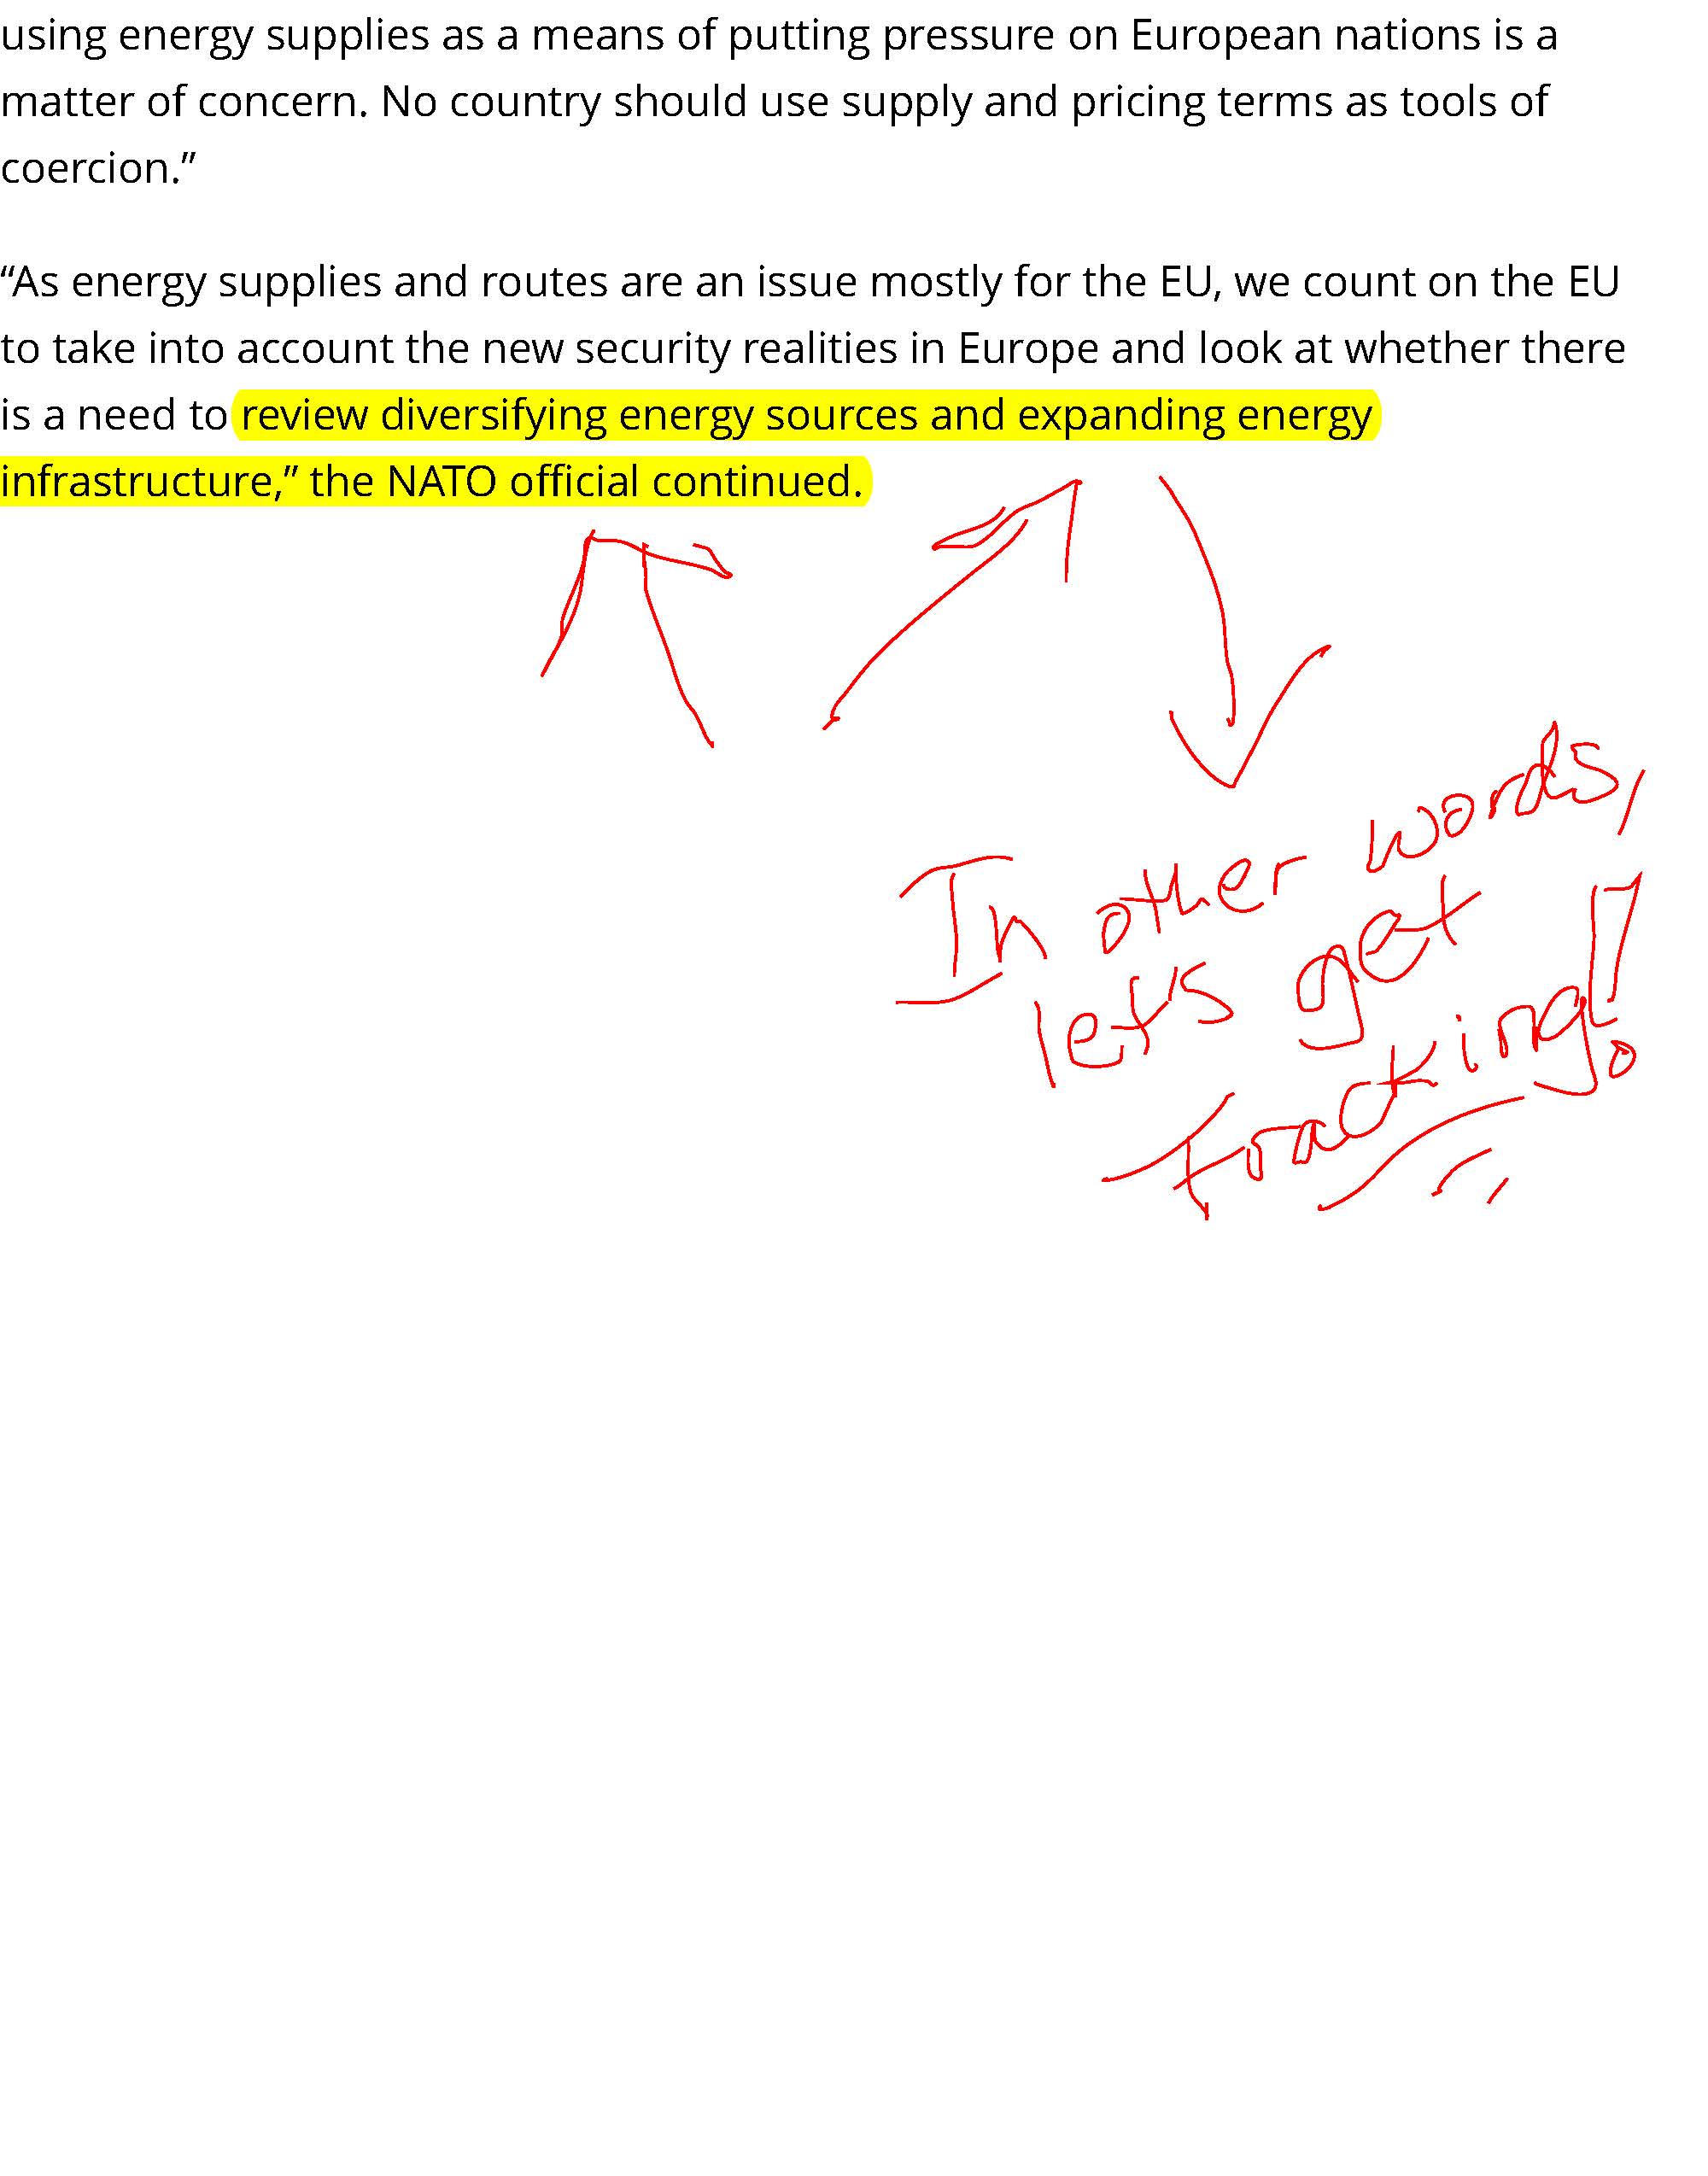 using energy supplies as a means of putting pressure on European nations is a
matter of concern. No country should use supply and pricing terms as tools of
coercion.”
“As energy supplies and routes are an issue mostly for the EU, we count on the EU
to take into account the new security realities in Europe and look at whether there
is a need to review diversifying energy sources and expanding energy
infrastructure,” the NATO official continued.
In other words,
let's get
fracking!